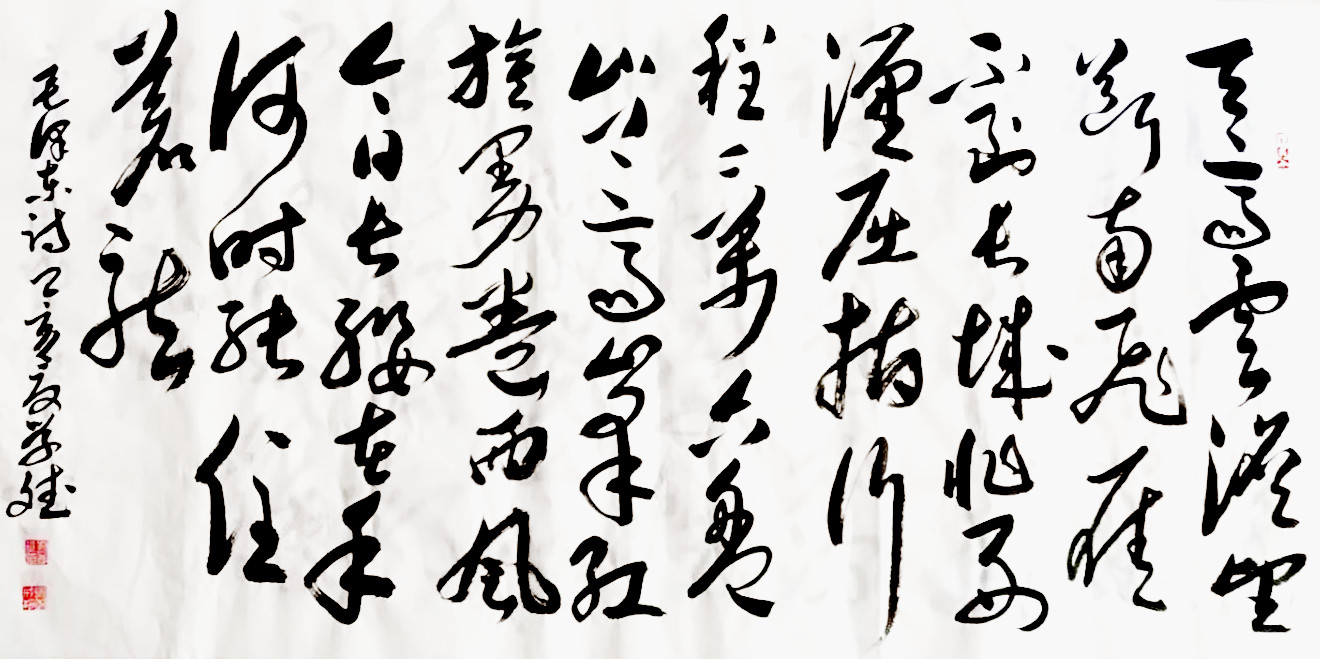 天高雲淡望
断南飞雁
不到长城非好
漢屈指行
程二萬六盘
山上高峰红
旗漫卷西风
今日长缨在手
何时缚住
苍龙
毛泽东诗 己亥夏